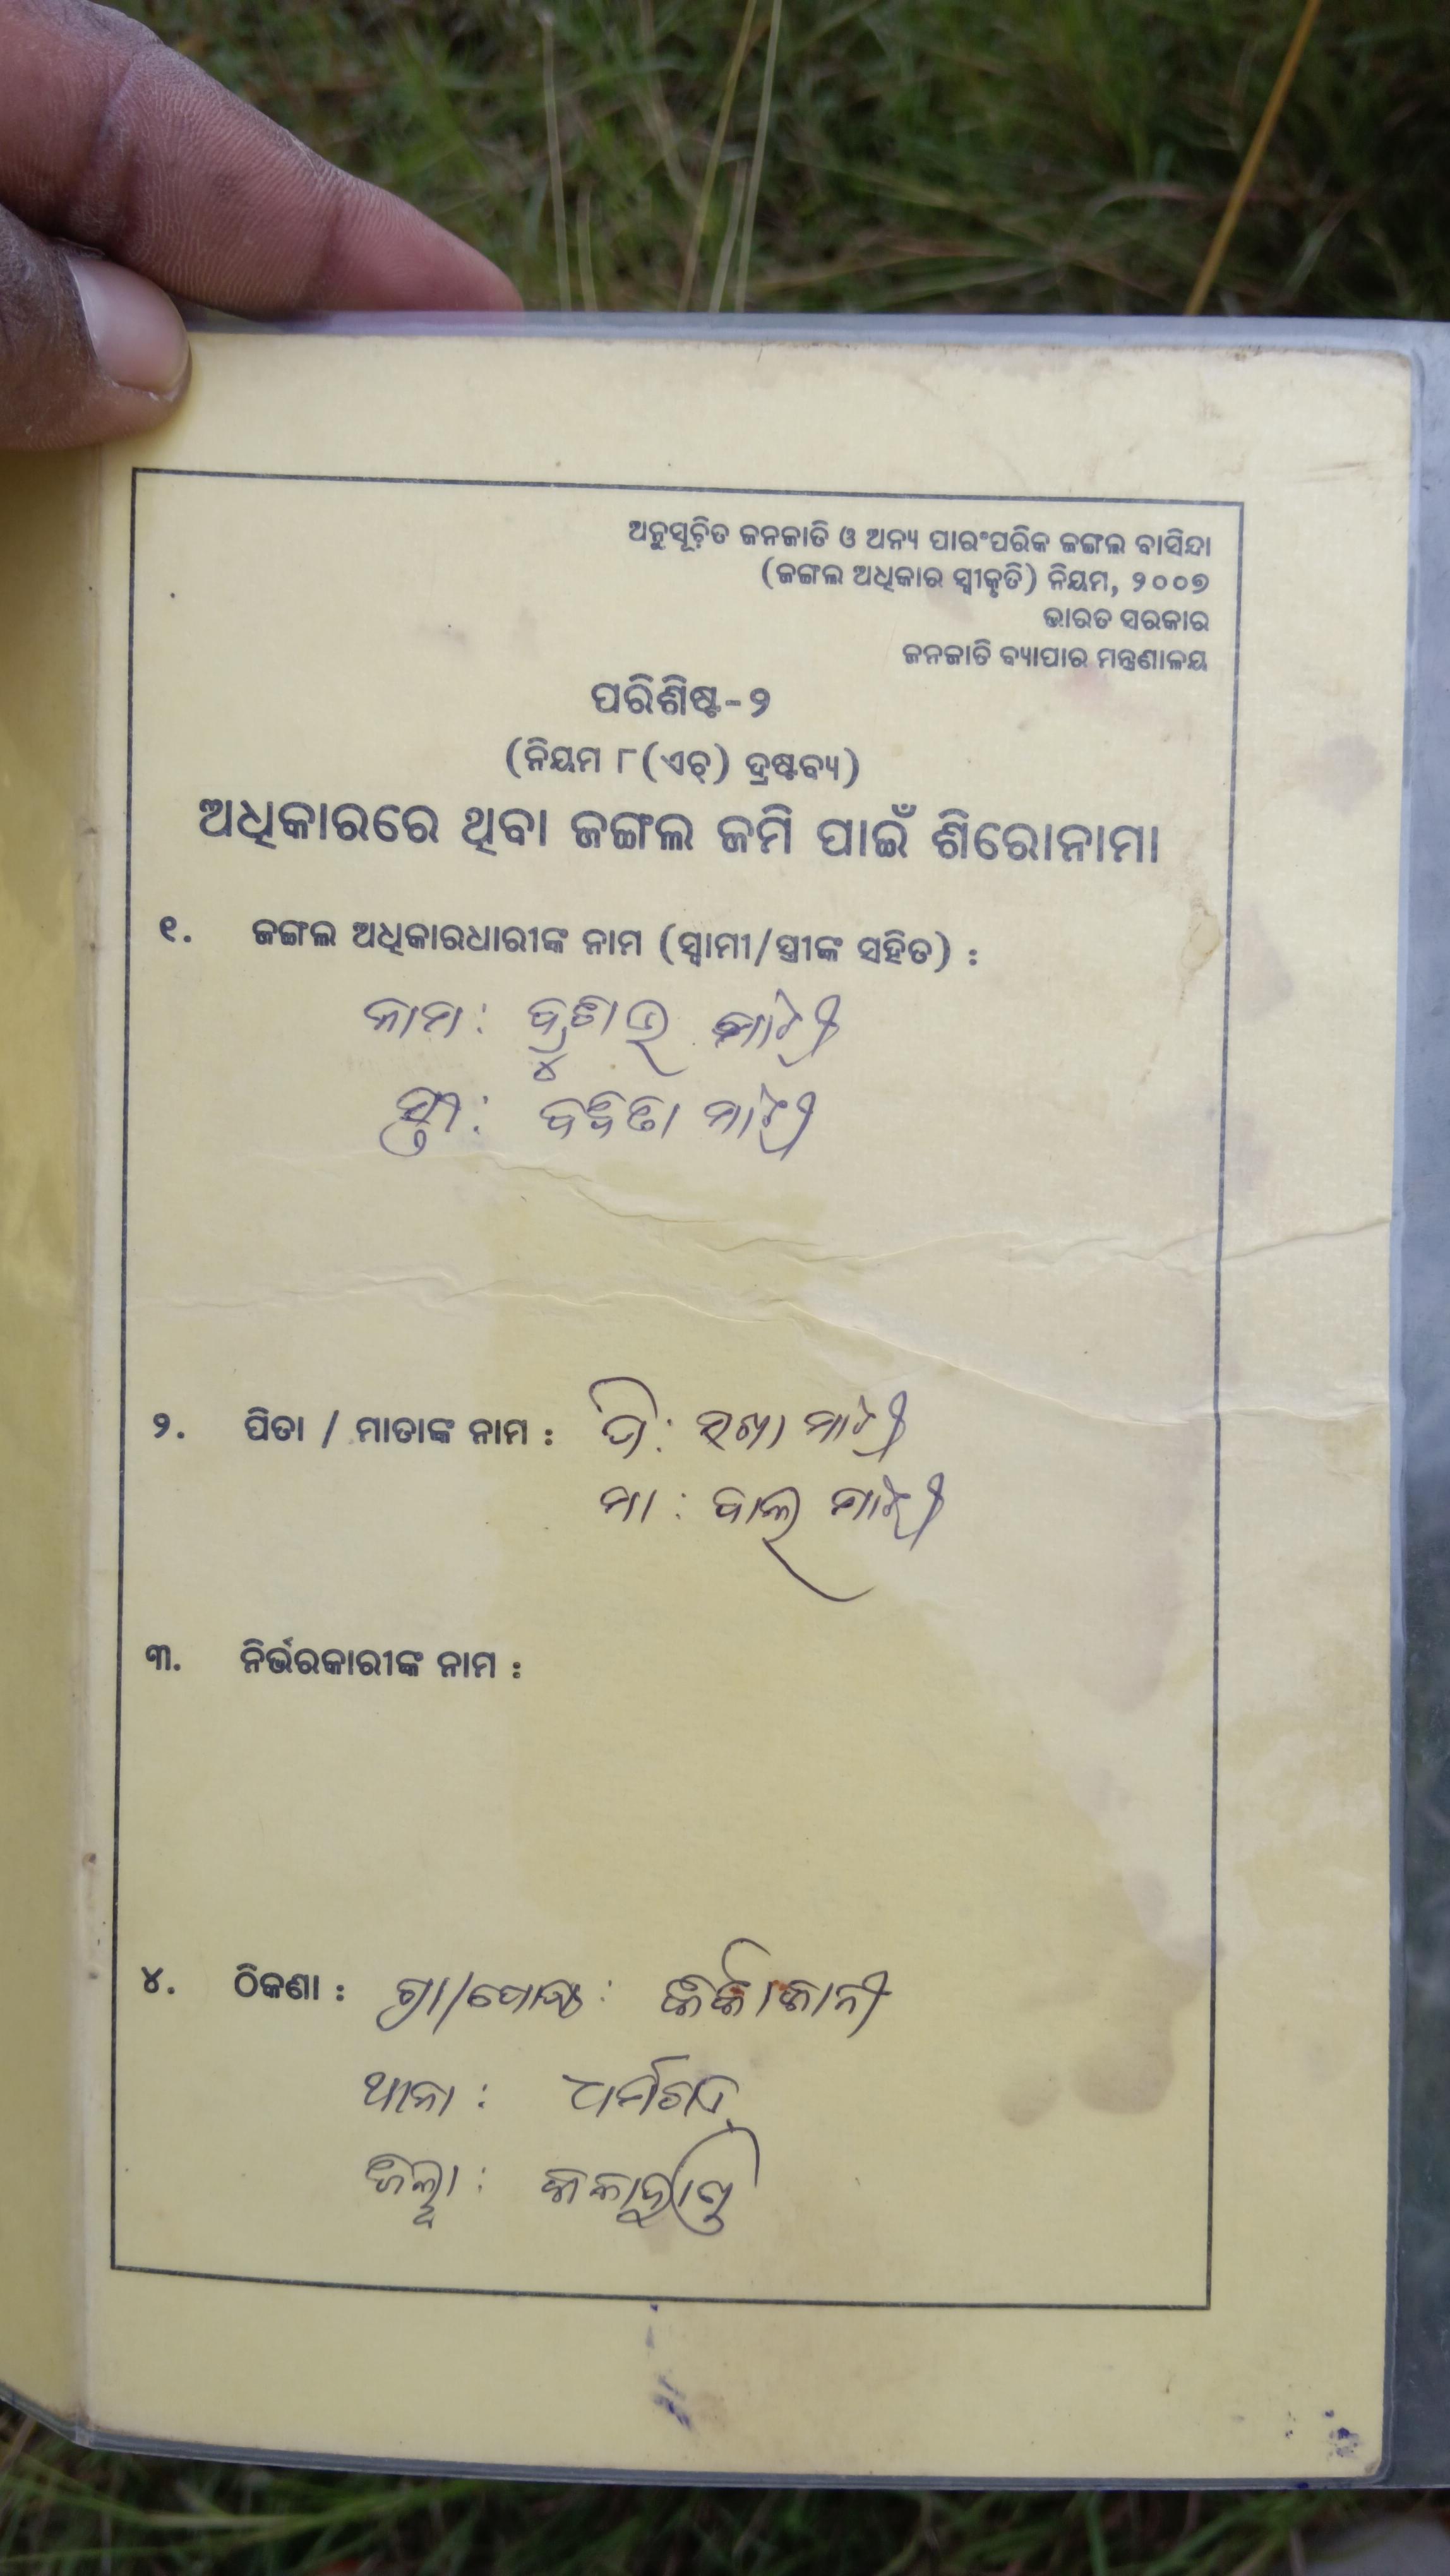 ଅନୁସୂଚିତ ଜନଜାତି ଓ ଅନ୍ୟ ପାରଂପରିକ ଜଙ୍ଗଲ ବାସିନ୍ଦା
(ଜଙ୍ଗଲ ଅଧିକାର ସ୍ୱୀକୃତି) ନିୟମ, ୨୦୦୭
ଭାରତ ସରକାର
ଜନଜାତି ବ୍ୟାପାର ମନ୍ତ୍ରଣାଳୟ
ପରିଶିଷ୍ଟ-୨
(ନିୟମ ୮(ଏଚ୍) ଦ୍ରଷ୍ଟବ୍ୟ)
ଅଧିକାରରେ ଥିବା ଜଙ୍ଗଲ ଜମି ପାଇଁ ଶିରୋନାମା
୧. ଜଙ୍ଗଲ ଅଧିକାରଧାରୀଙ୍କ ନାମ (ସ୍ୱାମୀ/ସ୍ତ୍ରୀଙ୍କ ସହିତ) :
ନାମ: ମାଝୀ
ସ୍ତ୍ରୀ: ମାଝୀ
୨. ପିତା / ମାତାଙ୍କ ନାମ : ପି: ମାଝୀ
ମା : ମାଝୀ
୩. ନିର୍ଭରକାରୀଙ୍କ ନାମ :
୪. ଠିକଣା : ଗ୍ରା/ପୋଷ୍ଟ:
ଥାନା : ଧର୍ମଗଡ଼
ଜିଲ୍ଲା : କଳାହାଣ୍ଡି